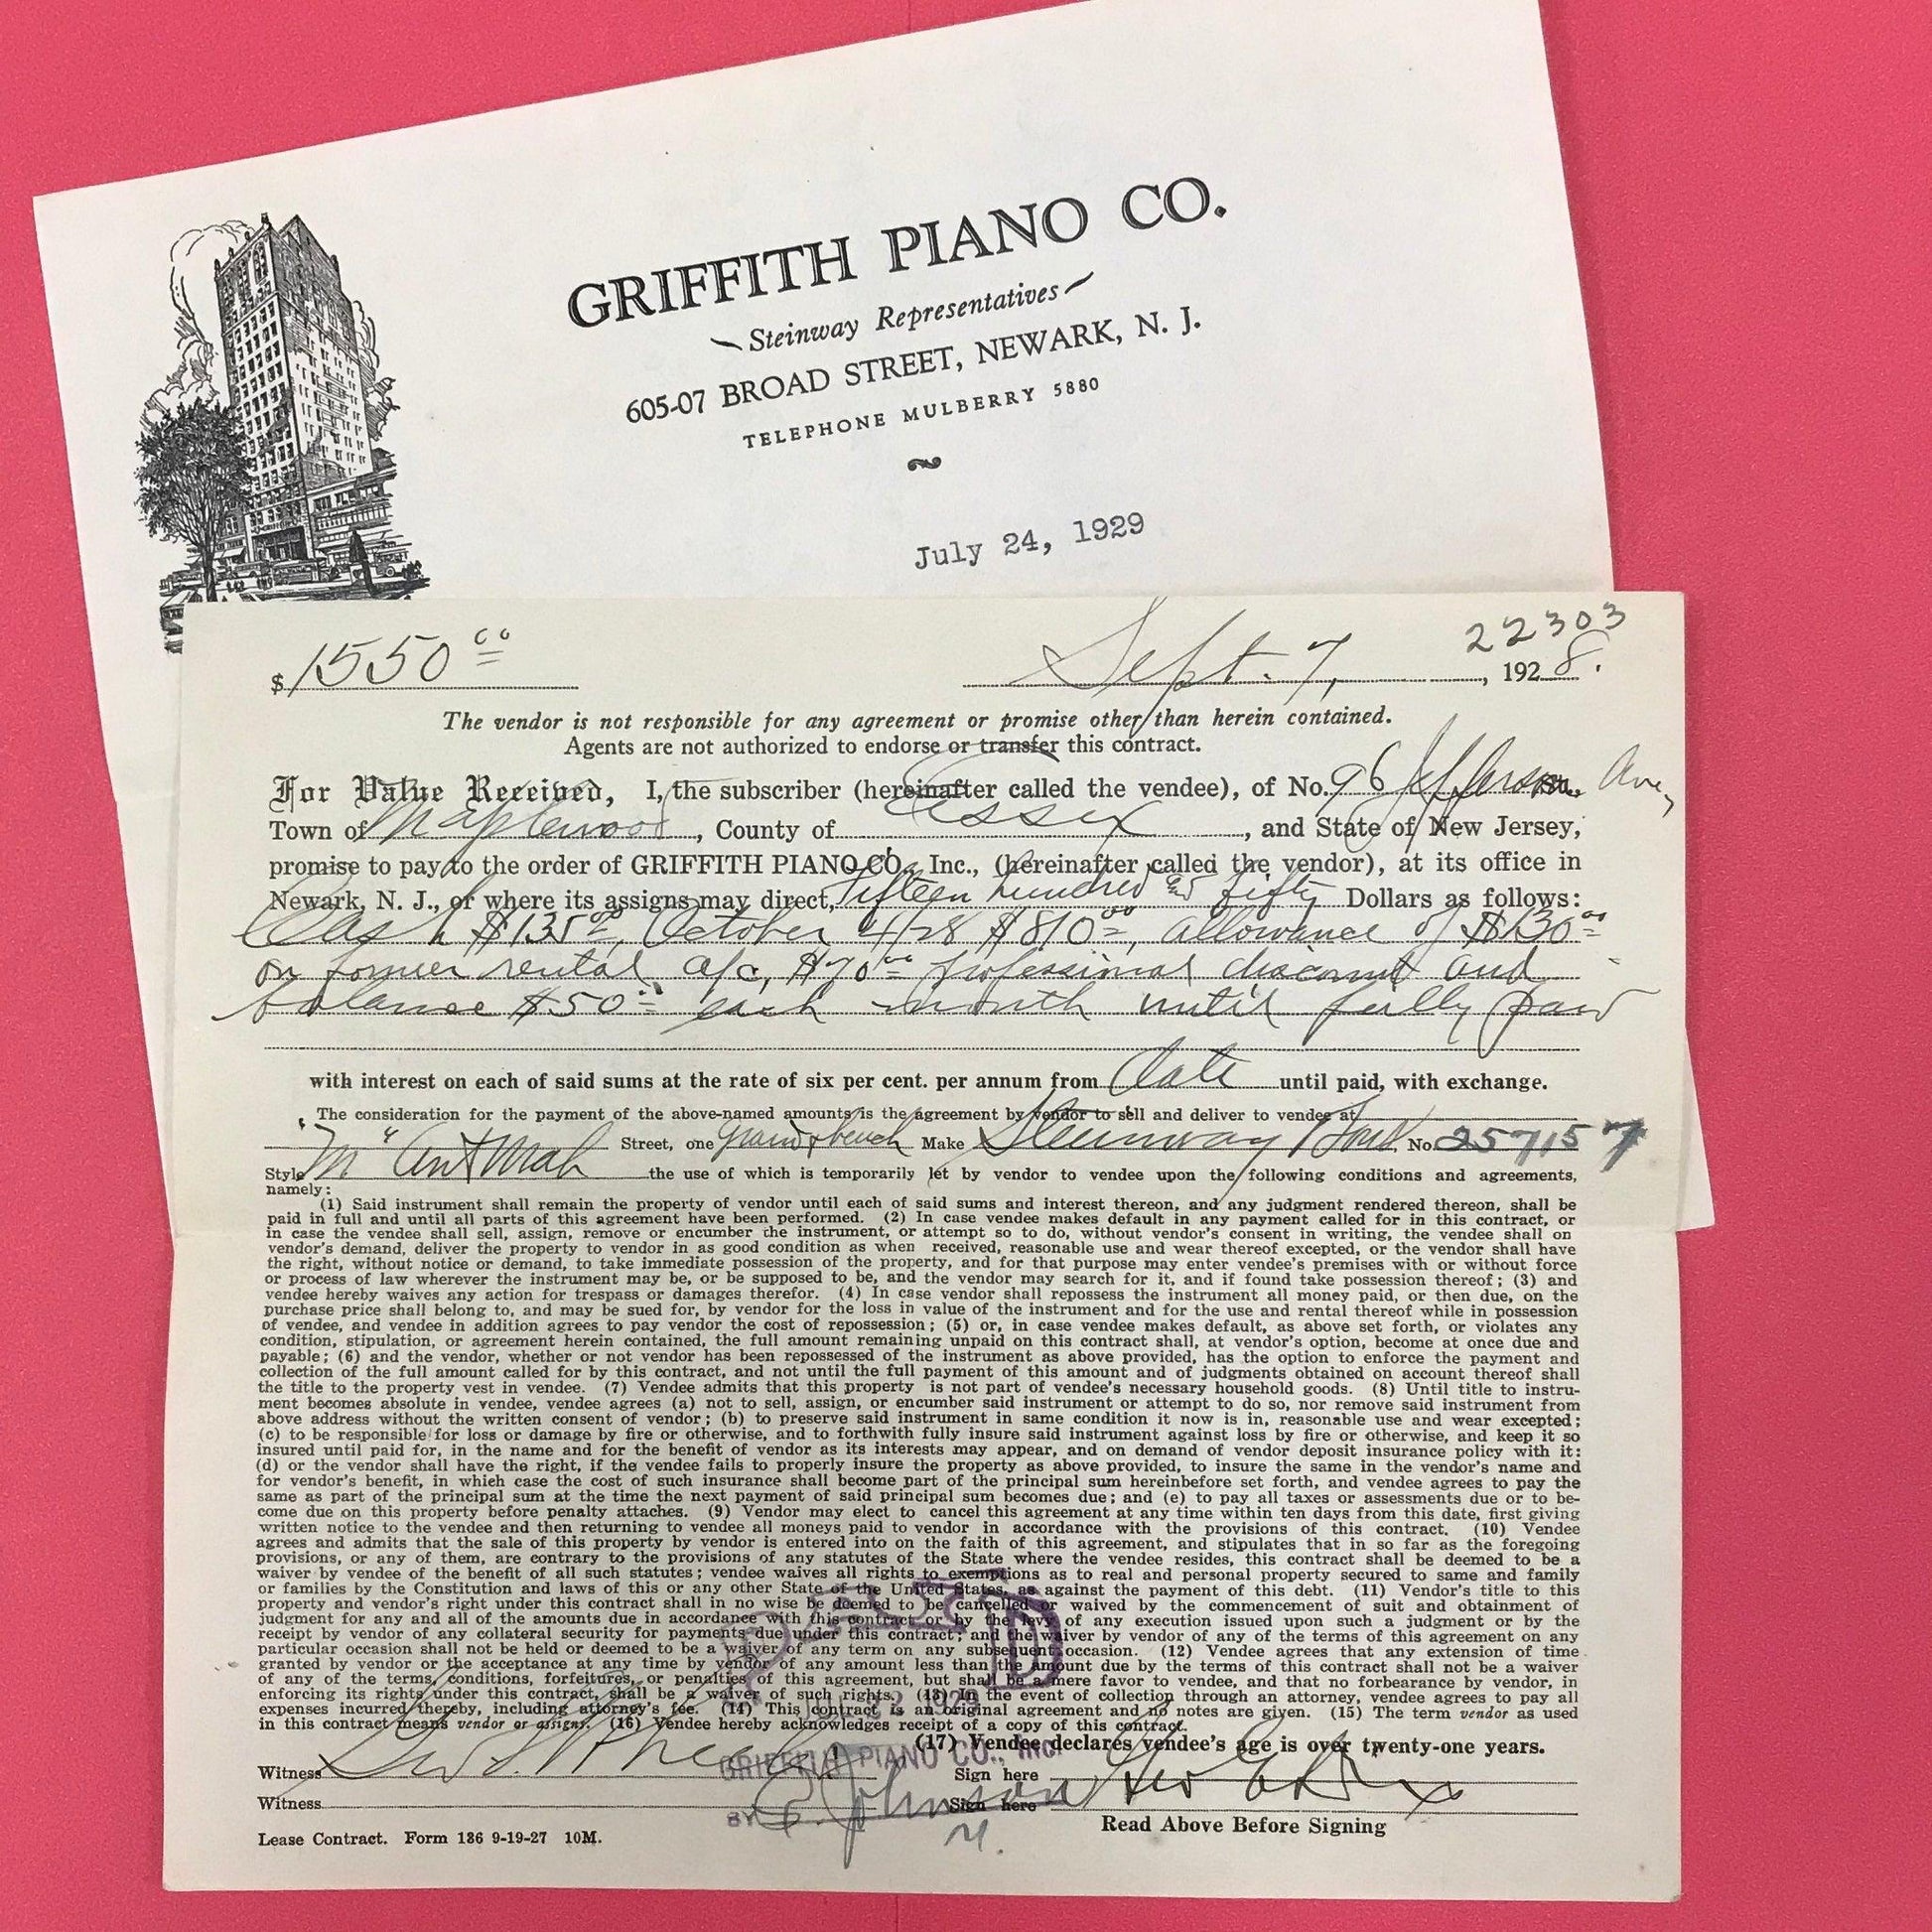 GRIFFITH PIANO CO.
Steinway Representatives
605-07 BROAD STREET, NEWARK, N. J.
TELEPHONE MULBERRY 5880
July 24, 1929
22303
$ 1550 00 Sept. 7, 1928.
The vendor is not responsible for any agreement or promise other than herein contained.
Agents are not authorized to endorse or transfer this contract.
For Value Received, I, the subscriber (hereinafter called the vendee), of No. 96 Jefferson Ave,
Town of Maplewood, County of Essex, and State of New Jersey,
promise to pay to the order of GRIFFITH PIANO CO., Inc., (hereinafter called the vendor), at its office in
Newark, N. J., or where its assigns may direct, fifteen hundred and fifty Dollars as follows:
Cash $135 00, October 4/28 $810 00, allowance of $130 00
on former rental a/c, $70 00 professional discount and
balance $50 00 each month until fully paid
with interest on each of said sums at the rate of six per cent. per annum from date until paid, with exchange.
The consideration for the payment of the above-named amounts is the agreement by vendor to sell and deliver to vendee at
Street, one grand & bench Make Steinway & Sons No. 257157
Style "M" Ant Mah the use of which is temporarily let by vendor to vendee upon the following conditions and agreements,
namely:
(1) Said instrument shall remain the property of vendor until each of said sums and interest thereon, and any judgment rendered thereon, shall be
paid in full and until all parts of this agreement have been performed. (2) In case vendee makes default in any payment called for in this contract, or
in case the vendee shall sell, assign, remove or encumber the instrument, or attempt so to do, without vendor's consent in writing, the vendee shall on
vendor's demand, deliver the property to vendor in as good condition as when received, reasonable use and wear thereof excepted, or the vendor shall have
the right, without notice or demand, to take immediate possession of the property, and for that purpose may enter vendee's premises with or without force
or process of law wherever the instrument may be, or be supposed to be, and the vendor may search for it, and if found take possession thereof; (3) and
vendee hereby waives any action for trespass or damages therefor. (4) In case vendor shall repossess the instrument all money paid, or then due, on the
purchase price shall belong to, and may be sued for, by vendor for the loss in value of the instrument and for the use and rental thereof while in possession
of vendee, and vendee in addition agrees to pay vendor the cost of repossession; (5) or, in case vendee makes default, as above set forth, or violates any
condition, stipulation, or agreement herein contained, the full amount remaining unpaid on this contract shall, at vendor's option, become at once due and
payable; (6) and the vendor, whether or not vendor has been repossessed of the instrument as above provided, has the option to enforce the payment and
collection of the full amount called for by this contract, and not until the full payment of this amount and of judgments obtained on account thereof shall
the title to the property vest in vendee. (7) Vendee admits that this property is not part of vendee's necessary household goods. (8) Until title to instru-
ment becomes absolute in vendee, vendee agrees (a) not to sell, assign, or encumber said instrument or attempt to do so, nor remove said instrument from
above address without the written consent of vendor; (b) to preserve said instrument in same condition it now is in, reasonable use and wear excepted;
(c) to be responsible for loss or damage by fire or otherwise, and to forthwith fully insure said instrument against loss by fire or otherwise, and keep it so
insured until paid for, in the name and for the benefit of vendor as its interests may appear, and on demand of vendor deposit insurance policy with it:
(d) or the vendor shall have the right, if the vendee fails to properly insure the property as above provided, to insure the same in the vendor's name and
for vendor's benefit, in which case the cost of such insurance shall become part of the principal sum hereinbefore set forth, and vendee agrees to pay the
same as part of the principal sum at the time the next payment of said principal sum becomes due; and (e) to pay all taxes or assessments due or to be-
come due on this property before penalty attaches. (9) Vendor may elect to cancel this agreement at any time within ten days from this date, first giving
written notice to the vendee and then returning to vendee all moneys paid to vendor in accordance with the provisions of this contract. (10) Vendee
agrees and admits that the sale of this property by vendor is entered into on the faith of this agreement, and stipulates that in so far as the foregoing
provisions, or any of them, are contrary to the provisions of any statutes of the State where the vendee resides, this contract shall be deemed to be a
waiver by vendee of the benefit of all such statutes; vendee waives all rights to exemptions as to real and personal property secured to same and family
or families by the Constitution and laws of this or any other State of the United States, as against the payment of this debt. (11) Vendor's title to this
property and vendor's right under this contract shall in no wise be deemed to be cancelled or waived by the commencement of suit and obtainment of
judgment for any and all of the amounts due in accordance with this contract or by the levy of any execution issued upon such a judgment or by the
receipt by vendor of any collateral security for payments due under this contract; and the waiver by vendor of any of the terms of this agreement on any
particular occasion shall not be held or deemed to be a waiver of any term on any subsequent occasion. (12) Vendee agrees that any extension of time
granted by vendor or the acceptance at any time by vendor of any amount less than the amount due by the terms of this contract shall not be a waiver
of any of the terms, conditions, forfeitures, or penalties of this agreement, but shall be a mere favor to vendee, and that no forbearance by vendor, in
enforcing its rights under this contract, shall be a waiver of such rights. (13) In the event of collection through an attorney, vendee agrees to pay all
expenses incurred thereby, including attorney's fee. (14) This contract is an original agreement and no notes are given. (15) The term vendor as used
in this contract means vendor or assigns. (16) Vendee hereby acknowledges receipt of a copy of this contract.
(17) Vendee declares vendee's age is over twenty-one years.
PAID
JUL 1929
GRIFFITH PIANO CO., INC.
BY E. Johnson
M.
Witness Sign here
Witness Sign here
Read Above Before Signing
Lease Contract. Form 136 9-19-27 10M.